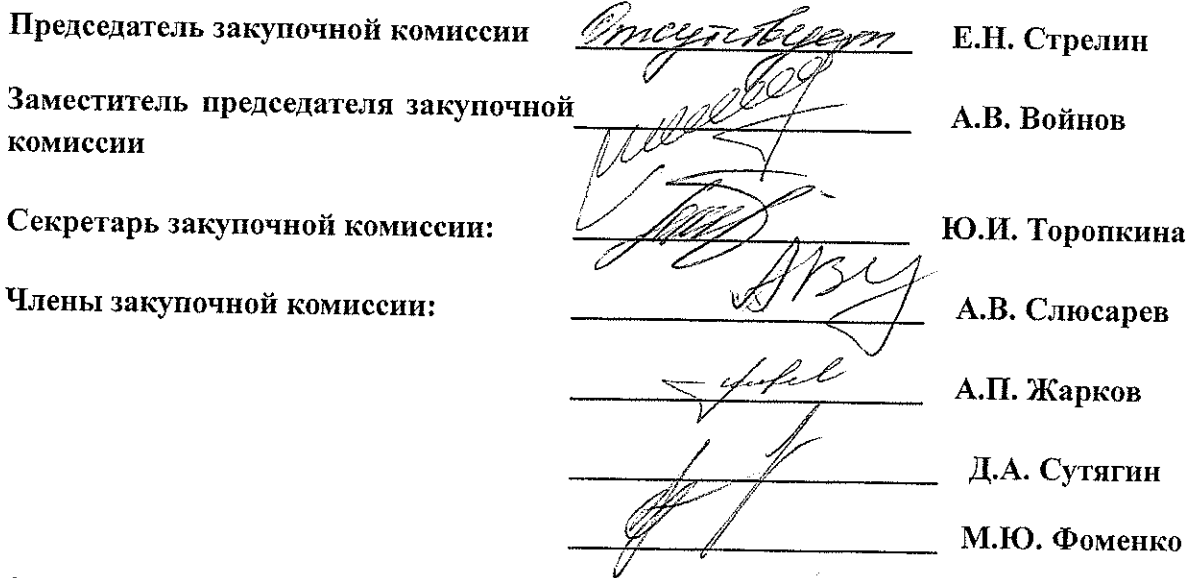 Председатель закупочной комиссии Отсутствует Е.Н. Стрелин
Заместитель председателя закупочной
комиссии А.В. Войнов
Секретарь закупочной комиссии: Ю.И. Торопкина
Члены закупочной комиссии: А.В. Слюсарев
А.П. Жарков
Д.А. Сутягин
М.Ю. Фоменко